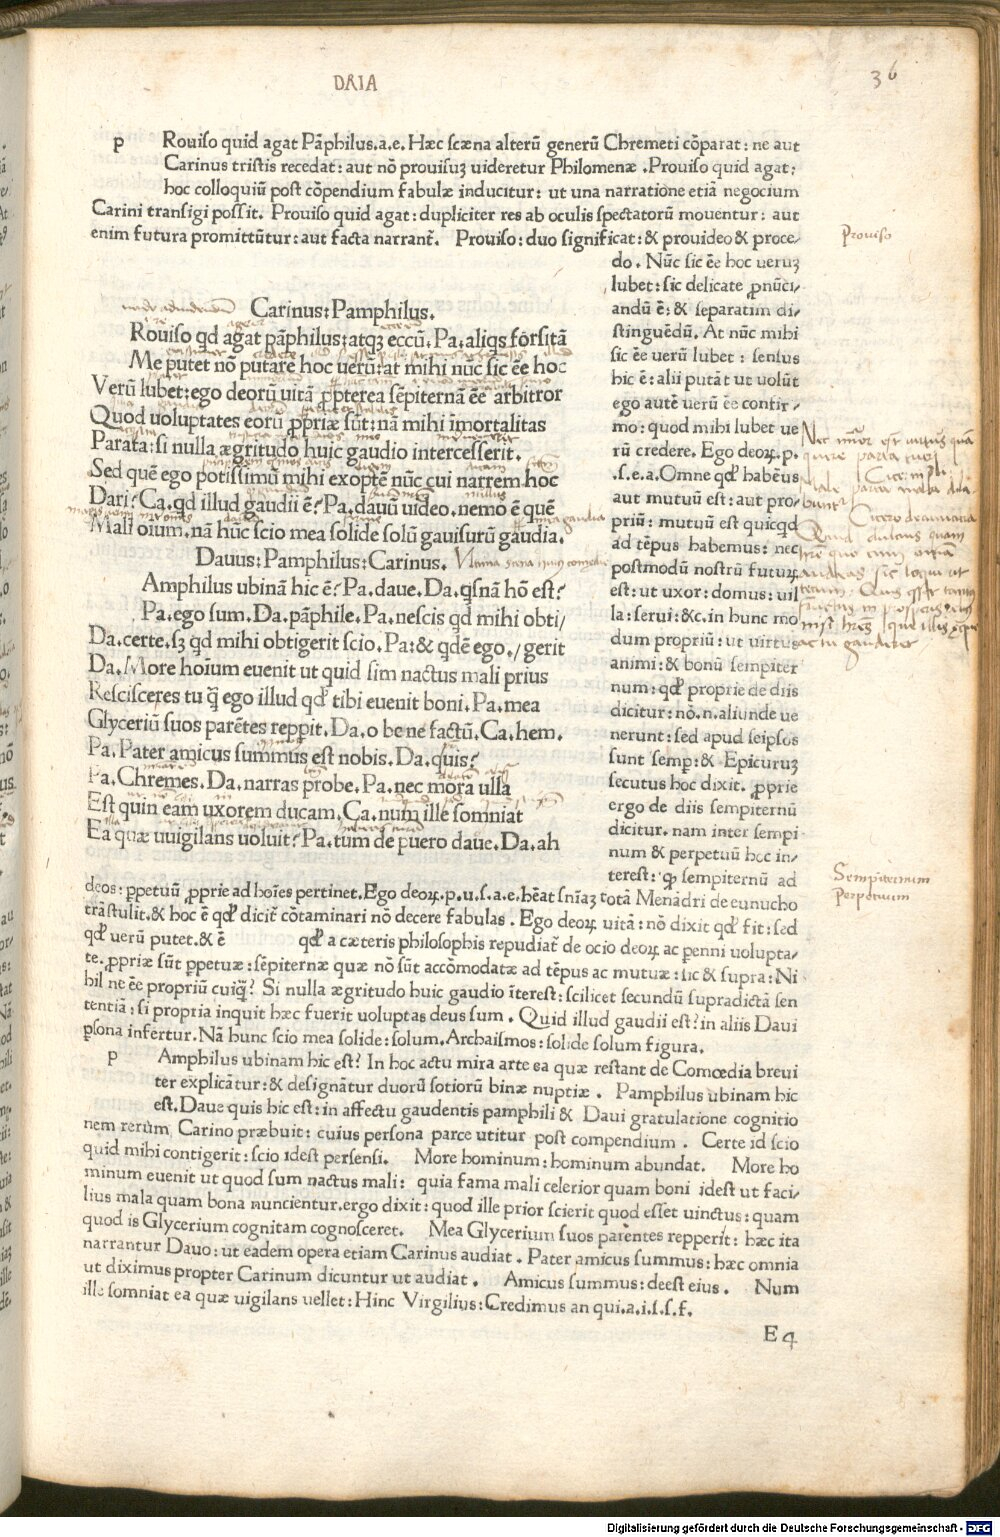 DRIA
36
p Rouiso quid agat Pãphilus.a.e. Hæc scæna alterũ generũ Chremeti cõparat: ne aut
Carinus tristis recedat: aut nõ prouisuʒ uideretur Philomenæ. Prouiso quid agat:
hoc colloquiũ post cõpendium fabulæ inducitur: ut una narratione etiã negocium
Carini transigi possit. Prouiso quid agat: dupliciter res ab oculis spectatorũ mouentur: aut
enim futura promittũtur: aut facta narrant᷑. Prouiso: duo significat: & prouideo & proce⸗
Prouiso
do. Nũc sic ẽe hoc ueruʒ
lubet: sic delicate ꝓnũci⸗
andũ ẽ: & separatim di⸗
stinguẽdũ. At nũc mihi
sic ẽe uerũ lubet: sensus
hic ẽ: alii putãt ut uolũt
ego autẽ uerũ ẽe confir⸗
mo: quod mihi lubet ue
rũ credere. Ego deoꝝ.p.
.s.e.a. Omne qđ habẽus
aut mutuũ est: aut pro⸗
priũ: mutuũ est quicqd
ad tẽpus habemus: nec
postmodũ nostrũ futuꝝ
est: ut uxor: domus: uil
la: serui: &c. in hunc mo
dum propriũ: ut uirtus
animi: & bonũ sempiter
num: qđ proprie de diis
dicitur: nõ.n. aliunde ue
nerunt: sed apud seipsos
sunt semp: & Epicuruʒ
secutus hoc dixit. ꝓprie
ergo de diis sempiternũ
dicitur. nam inter sempi
num & perpetuũ hoc in⸗
terest: ꝙ sempiternũ ad
Carinus: Pamphilus.
Rouiso qd agat pãphilus: atqʒ eccũ. Pa. aliqs forsitã
Me putet nõ putare hoc uerũ: at mihi nũc sic ẽe hoc
Verũ lubet: ego deorũ uitã ꝓpterea sẽpiternã ẽe arbitror
Quod uoluptates eorũ ꝓpriæ sũt: nã mihi ĩmortalitas
Parata: si nulla ægritudo huic gaudio intercesserit.
Sed quẽ ego potissimũ mihi exoptẽ nũc cui narrem hoc
Dari? Ca. qd illud gaudii ẽ? Pa. dauũ uideo. nemo ẽ quẽ
Mali oĩum. nã hũc scio mea solide solũ gauisurũ gaudia.
Dauus: Pamphilus: Carinus.
Amphilus ubinã hic ẽ? Pa. daue. Da. qsnã hõ est?
Pa. ego sum. Da. pãphile. Pa. nescis qd mihi obti/
Da. certe. sʒ qd mihi obtigerit scio. Pa: & qdẽ ego. / gerit
Da. More hoĩum euenit ut quid sim nactus mali prius
Rescisceres tu q̃ ego illud qđ tibi euenit boni. Pa. mea
Glyceriũ suos parẽtes reppit. Da. o bene factũ. Ca. hem.
Pa. Pater amicus summus est nobis. Da. quis?
Pa. Chremes. Da. narras probe. Pa. nec mora ulla
Est quin eam uxorem ducam. Ca. num ille somniat
Ea quæ uuigilans uoluit? Pa. tum de puero daue. Da. ah
Sempiternum
Perpetuum
deos: ꝑpetuũ ꝓprie ad hoĩes pertinet. Ego deoꝝ.p.u.s.a.e. hẽat sñiaʒ totã Menãdri de eunucho
trãstulit. & hoc ẽ qđ dicit᷑ cõtaminari nõ decere fabulas. Ego deoꝝ uitã: nõ dixit qđ fit: sed
qđ uerũ putet. & ẽ qđ a cæteris philosophis repudiat᷑ de ocio deoꝝ ac penni uolupta/
te. ꝓpriæ sũt ꝑpetuæ: sẽpiternæ quæ nõ sũt accõmodatæ ad tẽpus ac mutuæ: sic & supra: Ni
hil ne ẽe propriũ cuiq̃? Si nulla ægritudo huic gaudio ĩterest: scilicet secundũ supradictã sen
tentiã: si propria inquit hæc fuerit uoluptas deus sum. Quid illud gaudii est? in aliis Daui
ꝑsona infertur. Nã hunc scio mea solide: solum. Archaismos: solide solum figura.
p Amphilus ubinam hic est? In hoc actu mira arte ea quæ restant de Comœdia breui
ter explicãtur: & designãtur duorũ sotiorũ binæ nuptiæ. Pamphilus ubinam hic
est. Daue quis hic est: in affectu gaudentis pamphili & Daui gratulatione cognitio
nem rerum Carino præbuit: cuius persona parce utitur post compendium. Certe id scio
quid mihi contigerit: scio idest persensi. More hominum: hominum abundat. More ho
minum euenit ut quod sum nactus mali: quia fama mali celerior quam boni idest ut faci/
lius mala quam bona nuncientur. ergo dixit: quod ille prior scierit quod esset uinctus: quam
quod is Glycerium cognitam cognosceret. Mea Glycerium suos parentes repperit: hæc ita
narrantur Dauo: ut eadem opera etiam Carinus audiat. Pater amicus summus: hæc omnia
ut diximus propter Carinum dicuntur ut audiat. Amicus summus: deest eius. Num
ille somniat ea quæ uigilans uellet: Hinc Virgilius: Credimus an qui.a.i.s.s.f.
E 4
Digitalisierung gefördert durch die Deutsche Forschungsgemeinschaft - DFG